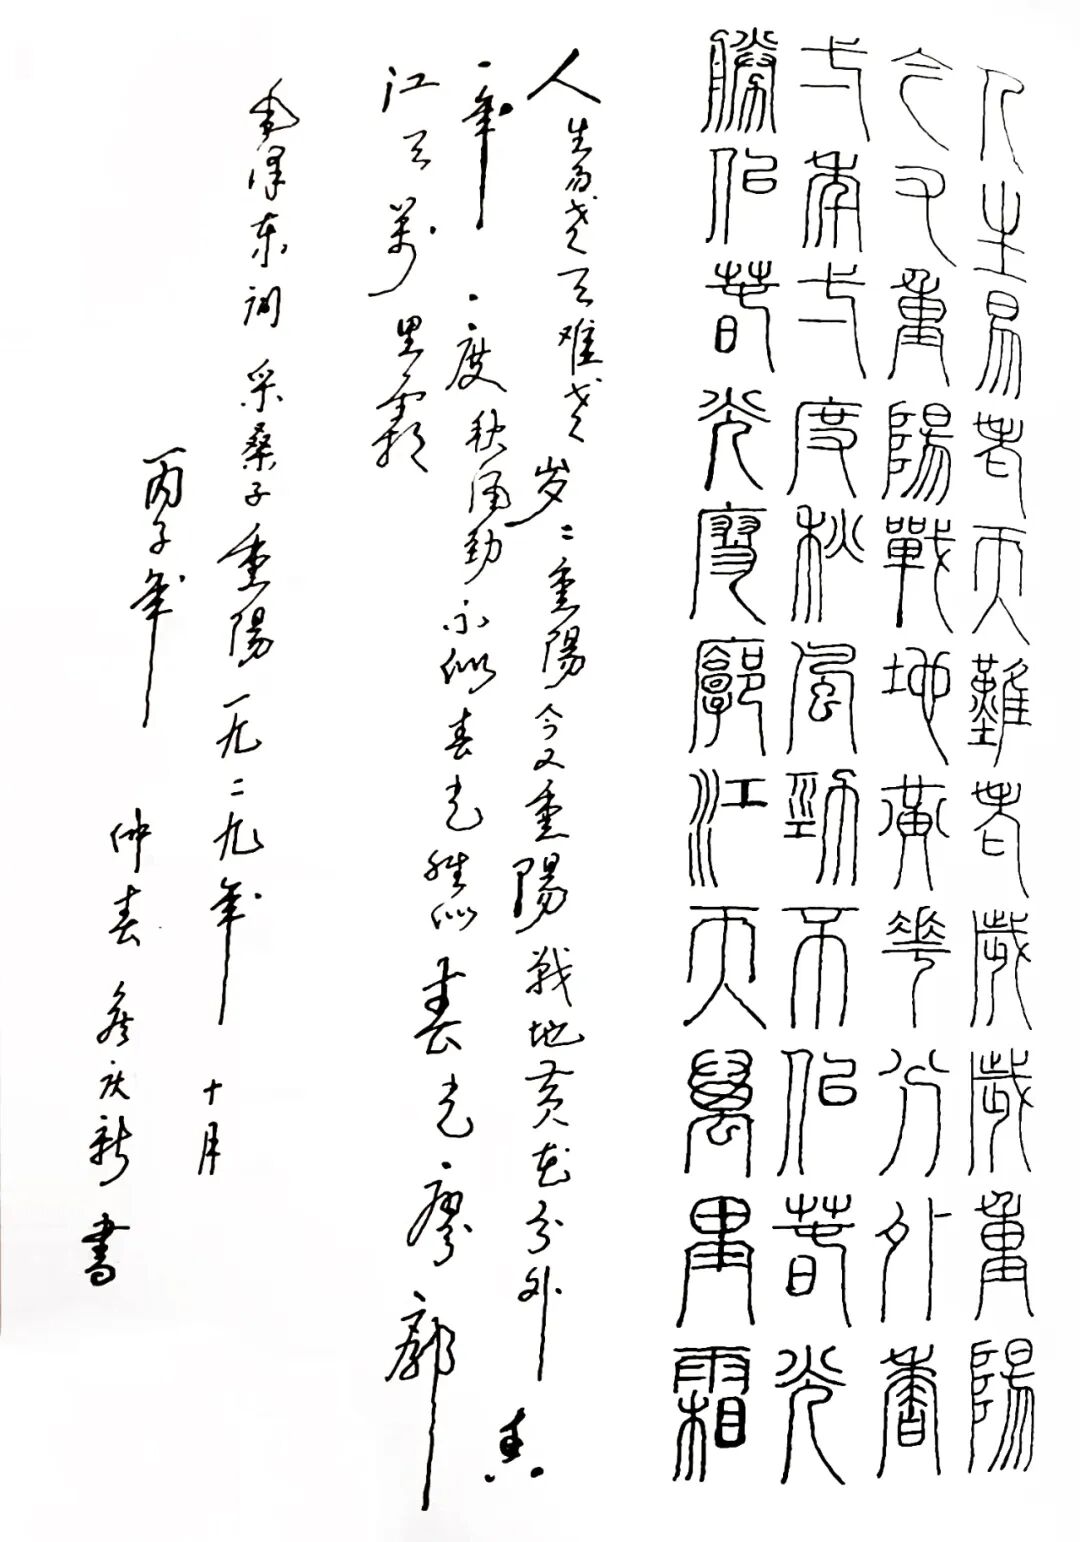 人生易老天難老歲歲重陽
今又重陽戰地黃花分外香
弌年弌度秋風勁不似春光
勝似春光寥廓江天萬里霜
人生易老天难老岁〻重陽今又重陽戰地黄花分外香
一年一度秋风劲不似春光胜似春光廖廓
江天萬里霜
毛泽东词采桑子重陽一九二九年十月
丙子年仲春庆新書